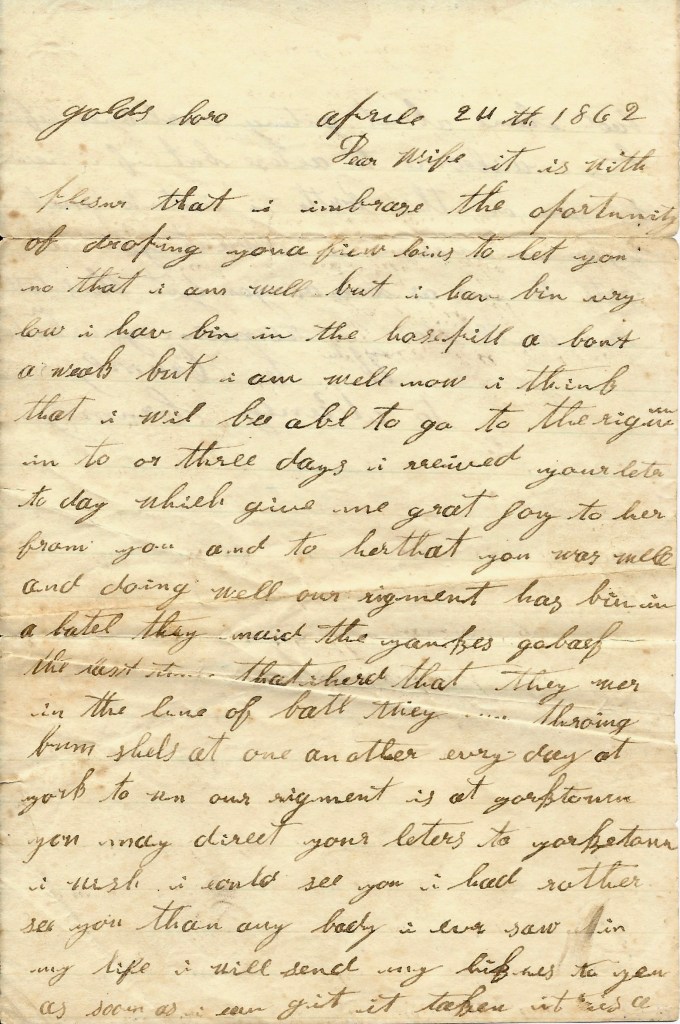 golds boro aprile 24 th 1862
Dear Wife it is with
plesur that i imbrase the oportunity
of droping you a fiew lains to let you
no that i am well but i hav bin very
low i hav bin in the hospitll a bout
a weak but i am well now i think
that i wil be abl to go to the rigim
in to or three days i reeived your leter
to day which give me grat joy to her
from you and to her that you was well
and doing well our rigment has bin in
a batel they maid the yankes go back
the last time that i herd that they wer
in the line of batl they throing
bum shels at one another every day at
york to un our rigment is at yorktown
you may direct your leters to yorketown
i wish i could see you i had rother
see you than any body i ever saw in
my life i will send my liknes to you
as soon as i can git it taken it is a